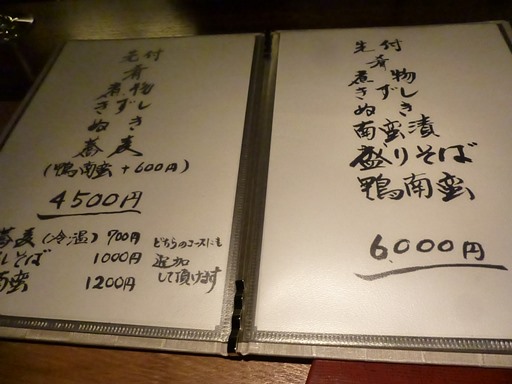 先付
肴
煮物
きずし
ぬき
蕎麦
(鴨南蛮 +600円)
4500円
蕎麦(冷温) 700円
しそば 1000円
南蛮 1200円
どちらのコースにも
追加
して頂けます
先付
肴
煮物
きずし
ぬき
南蛮漬
盛りそば
鴨南蛮
6,000円